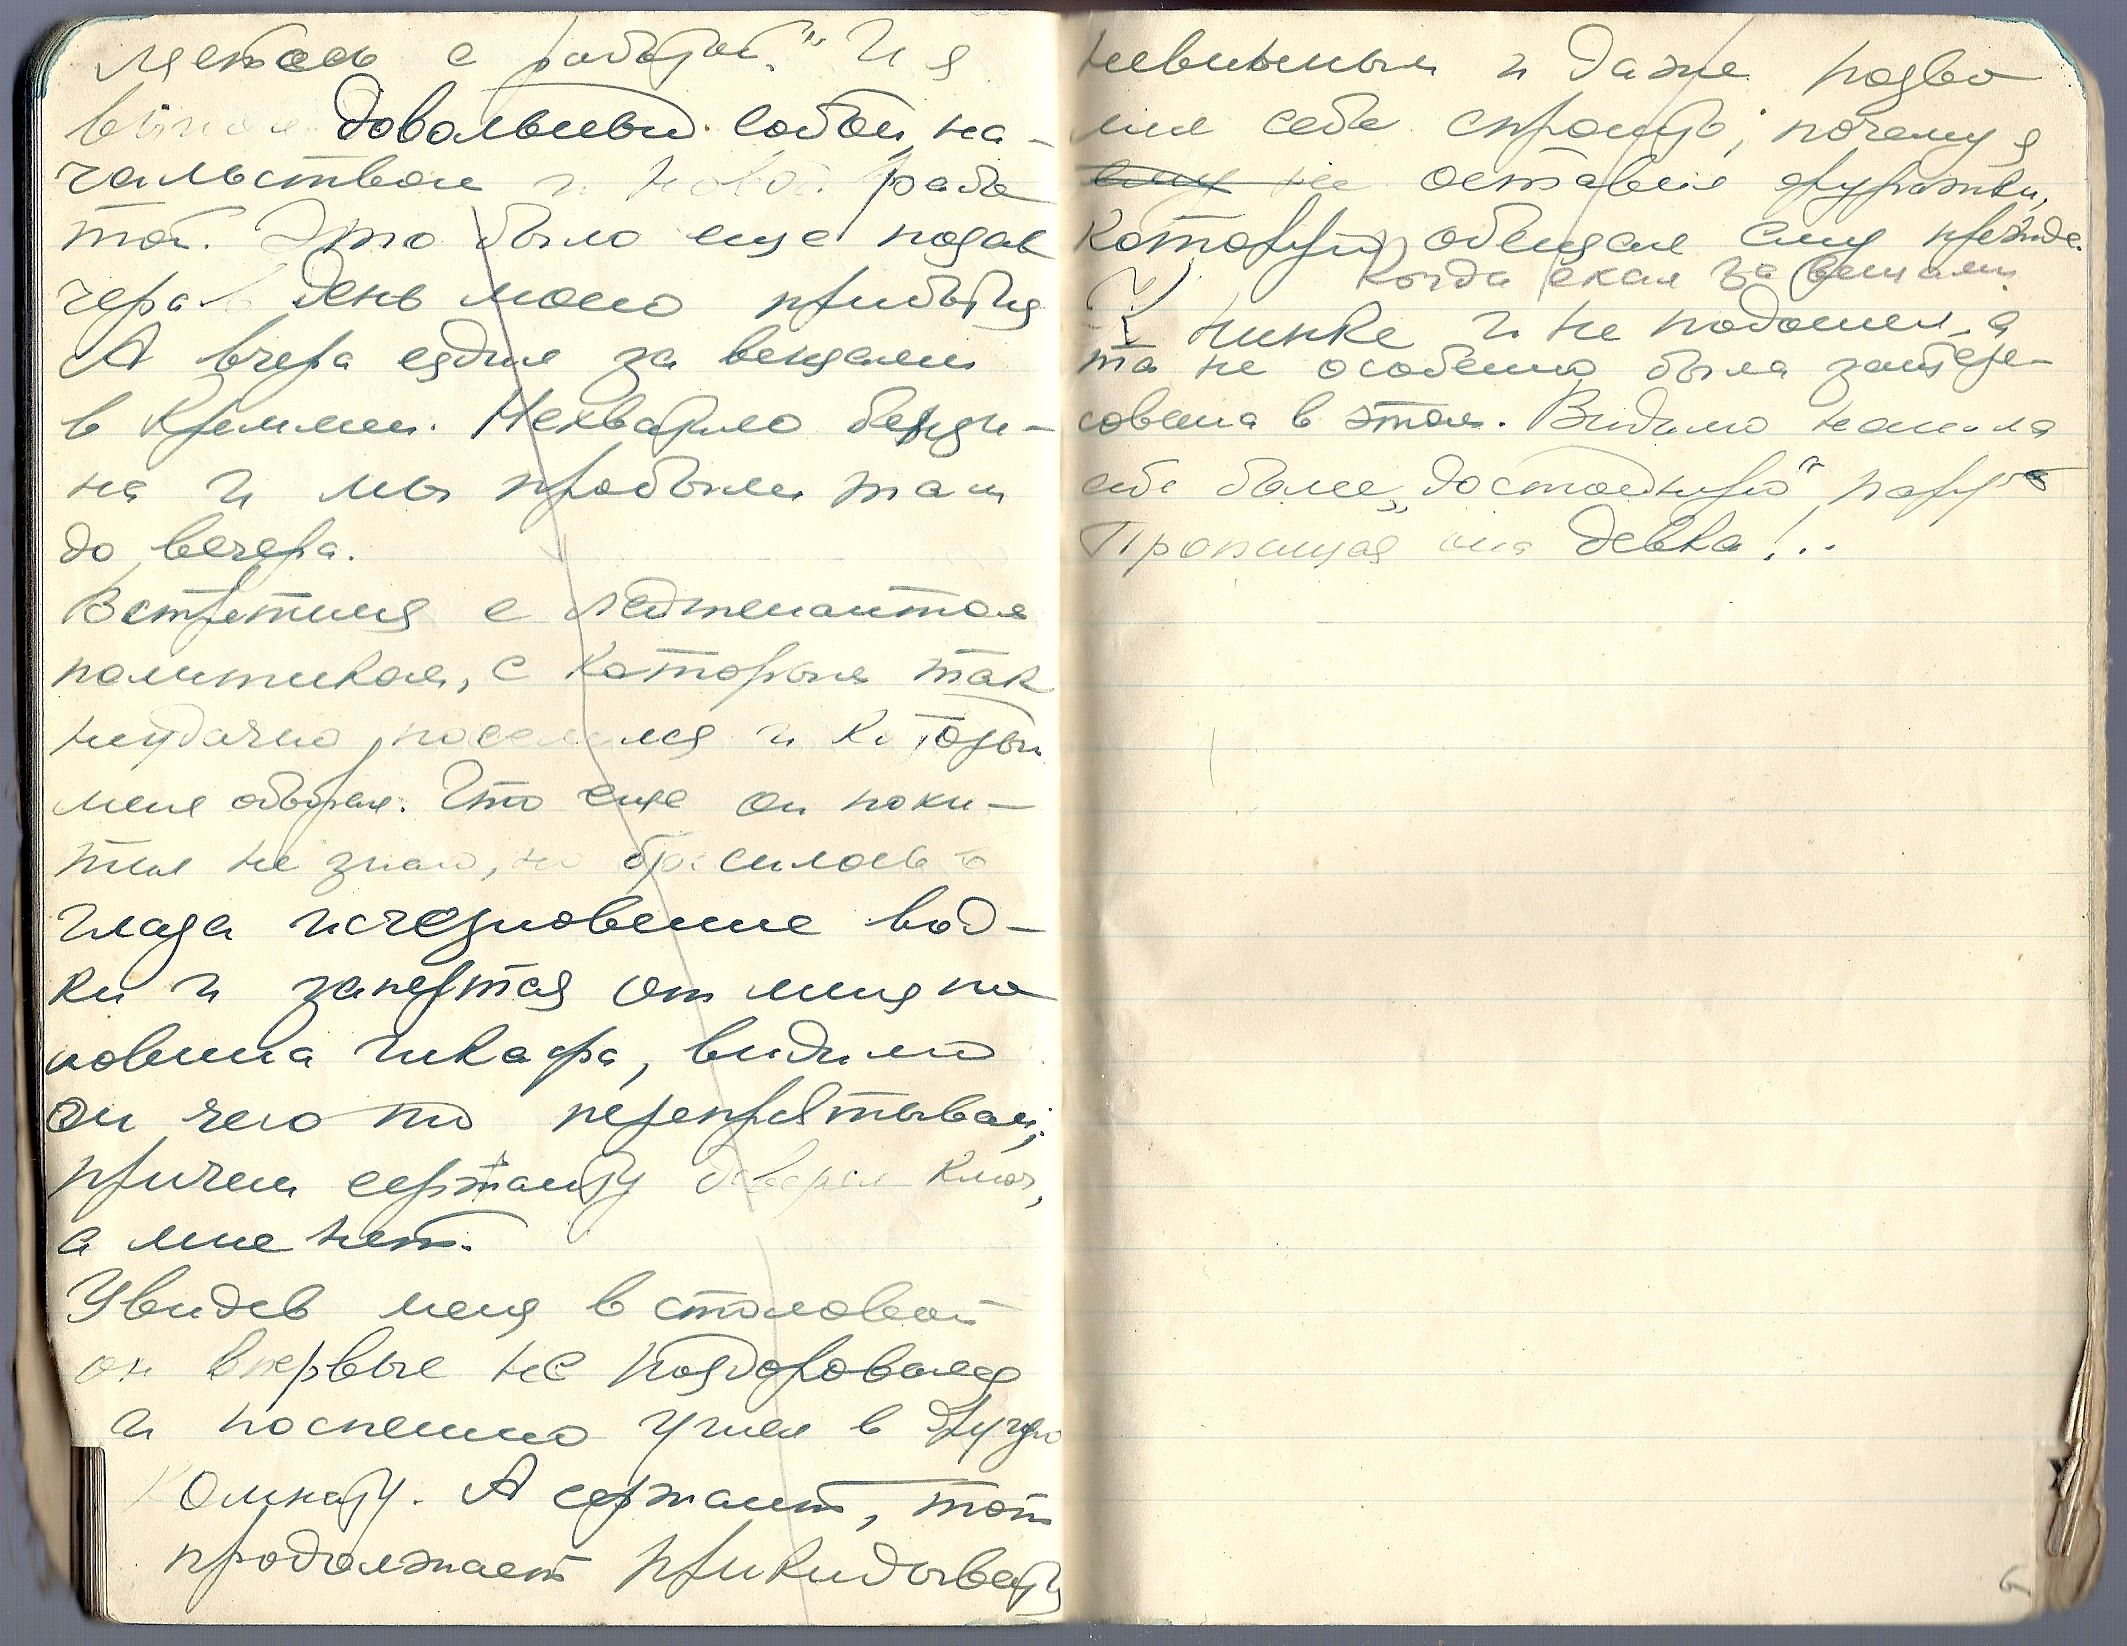 ляетесь с работой." И я
вышел довольный собой, на-
чальством и новой рабо
той. Это было еще позав
чера в день моего прибытия
А вчера ездил за вещами
в Креммен. Нехватило бензи-
на и мы пробыли там
до вечера.
Встретился с лейтенантом
политиком, с которым так
неудачно поселился и который
меня обобрал. Что еще он похи-
тил не знаю, но бросилось в
глаза исчезновение вод-
ки и запертая от меня по
ловина шкафа, видимо
он чего то перепрятывал;
причем сержанту доверял ключ,
а мне нет.
Увидев меня в столовой
он впервые не поздоровался
и поспешно ушел в другую
комнату. А сержант, тот
продолжает прикидывать
невинным и даже позво
лил себе спросить; почему я
ему не оставил фуражки,
которую обещал ему прежде.
Когда ехал за вещами
К Нинке и не подошел, а
та не особенно была заинтере-
сована в этом. Видимо нашла
себе более „достойную" пару
Пропащая она девка!..